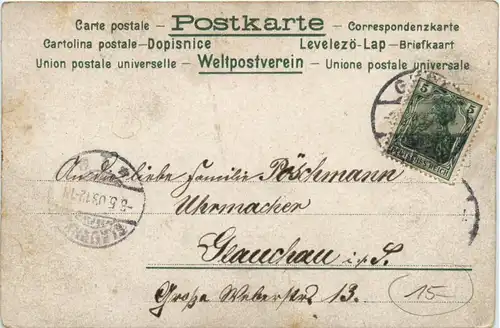 Carte postale – Postkarte – Correspondenzkarte
Cartolina postale – Dopisnice Levelezö-Lap – Briefkaart
Union postale universelle – Weltpostverein – Unione postale universale
5 5
An die liebe Familie Pöschmann
Uhrmacher
-8.5.03.12-1N
Glauchau i. S.
Große Weberstrs 13.
15